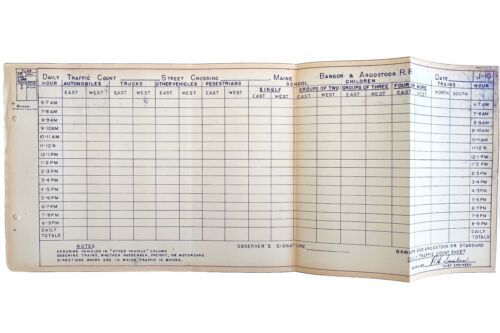 PLAN
DAILY TRAFFIC COUNT STREET CROSSING , MAINE BANGOR & AROOSTOOK R.R. DATE J-10
HOUR AUTOMOBILES TRUCKS OTHER VEHICLES PEDESTRIANS SCHOOL CHILDREN TRAINS HOUR
SINGLY GROUPS OF TWO GROUPS OF THREE FOUR OR MORE
EAST WEST EAST WEST EAST WEST EAST WEST EAST WEST EAST WEST EAST WEST EAST WEST NORTH SOUTH
6-7 AM 6-7 AM
7-8 AM 7-8 AM
8-9 AM 8-9 AM
9-10 AM 9-10 AM
10-11 AM 10-11 AM
11-12 N 11-12 N
12-1 PM 12-1 PM
1-2 PM 1-2 PM
2-3 PM 2-3 PM
3-4 PM 3-4 PM
4-5 PM 4-5 PM
5-6 PM 5-6 PM
6-7 PM 6-7 PM
7-8 PM 7-8 PM
8-9 PM 8-9 PM
DAILY TOTALS DAILY TOTALS
NOTES
DESCRIBE VEHICLES IN "OTHER VEHICLE" COLUMN.
DESCRIBE TRAINS, WHETHER PASSENGER, FREIGHT, OR MOTORCARS
DIRECTIONS SHOWN ARE IN WHICH TRAFFIC IS MOVING.
OBSERVER'S SIGNATURE
BANGOR AND AROOSTOOK RR STANDARD
DAILY TRAFFIC COUNT SHEET
CHIEF ENGINEER